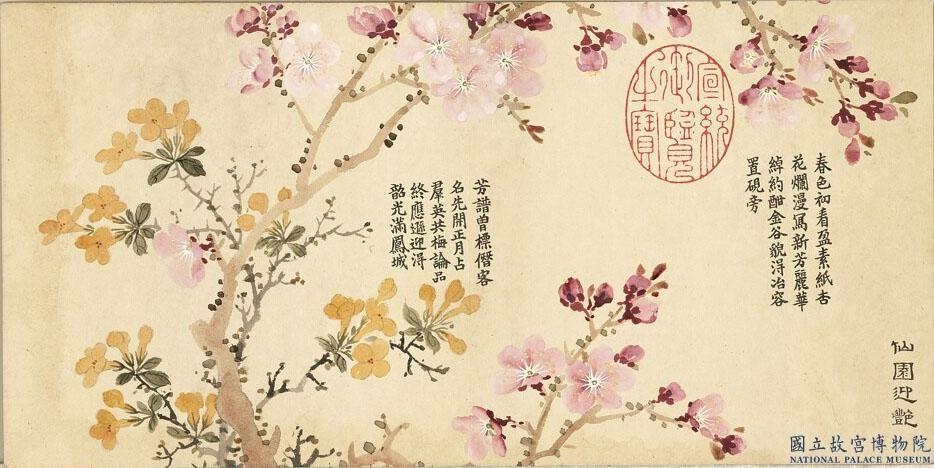 仙園迎艷
春色初看盈素紙杏
花爛漫寫新芳麗華
綽約酣金谷貌淂冶容
置硯旁
宣統
御覽
之寶
芳譜曾標僭客
名先開正月占
羣英共梅論品
終應遜迎淂
韶光滿鳳城
國立故宮博物院
NATIONAL PALACE MUSEUM